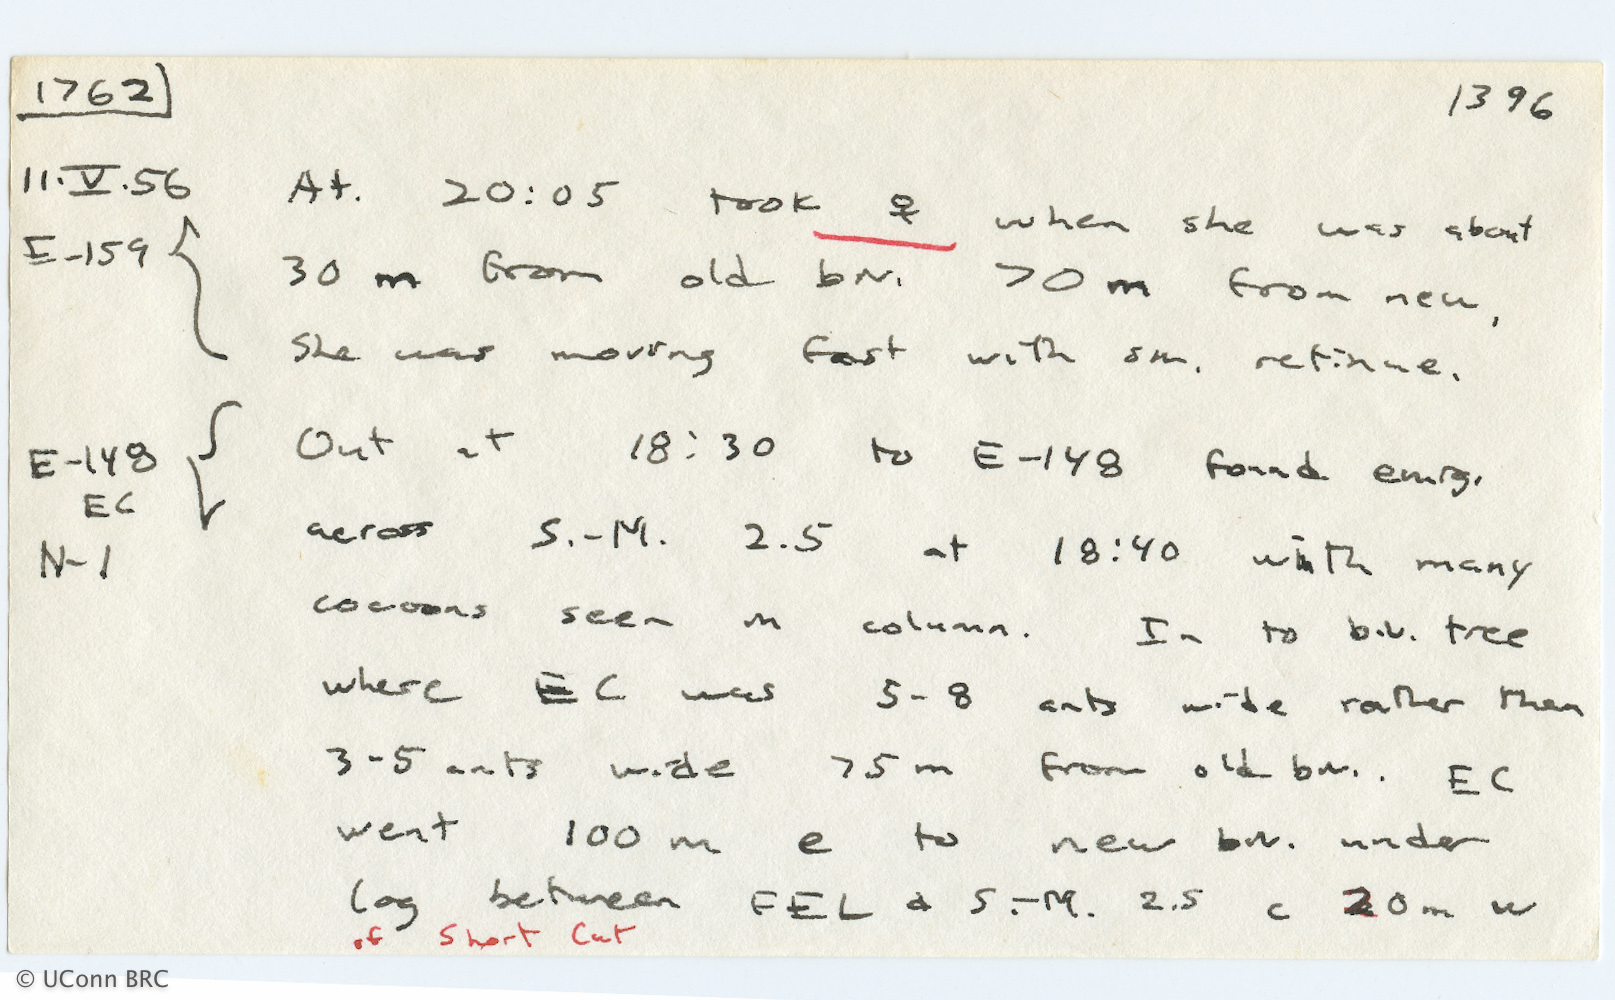 1762
1396
11.V.56 At. 20:05 took ♀ when she was about
E-159 30 m from old biv. 70 m from new,
She was moving fast with sm. retinue.
E-148 Out at 18:30 to E-148 found emig.
EC across S.-M. 2.5 at 18:40 with many
N-1
cocoons seen in column. In to biv. tree
where EC was 5-8 ants wide rather than
3-5 ants wide 75 m from old biv.. EC
went 100 m e to new biv. under
log between FEL & S.-M. 2.5 c 20 m w
of Short Cut
© UConn BRC